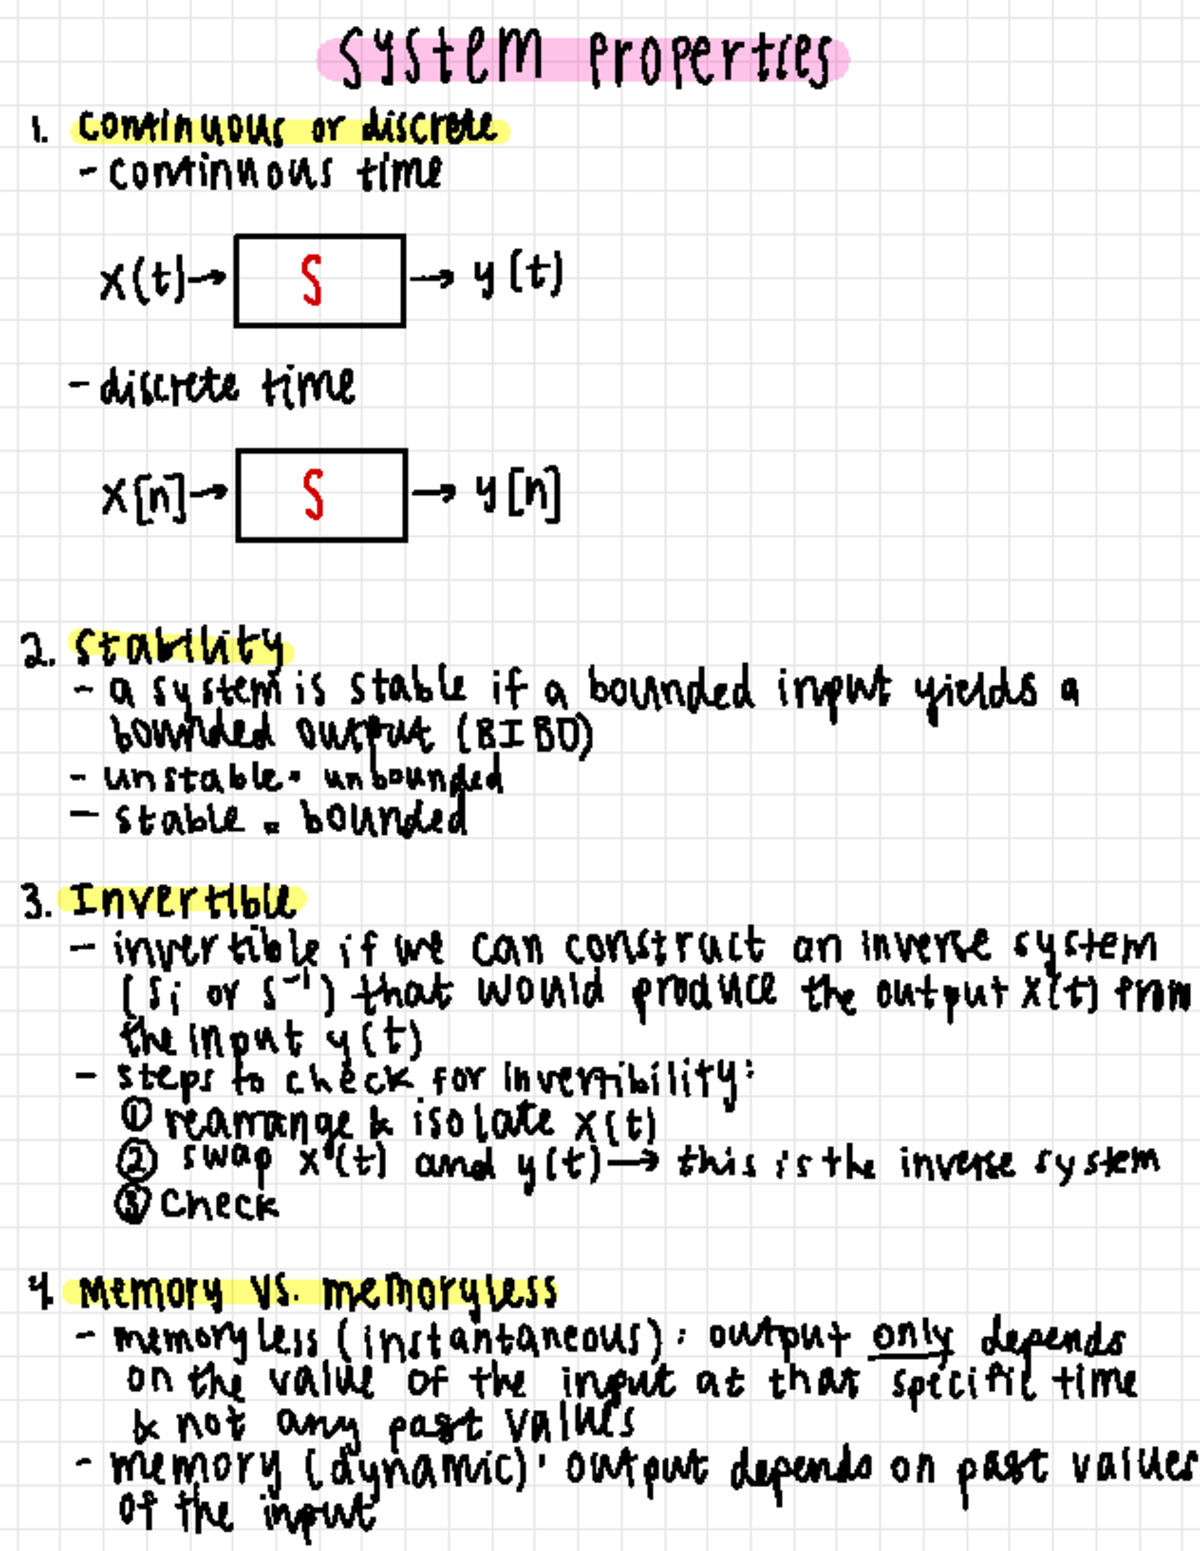 System Properties
1. continuous or discrete
- continuous time
x(t) → S → y(t)
- discrete time
x[n] → S → y[n]
2. Stability
- a system is stable if a bounded input yields a
bounded output (BIBO)
- unstable = unbounded
- stable = bounded
3. Invertible
- invertible if we can construct an inverse system
(Si or S⁻¹) that would produce the output x(t) from
the input y(t)
- steps to check for invertibility:
① rearrange & isolate x(t)
② swap x(t) and y(t) → this is the inverse system
③ Check
4. Memory vs. memoryless
- memoryless (instantaneous): output only depends
on the value of the input at that specific time
& not any past values
- memory (dynamic): output depends on past values
of the input